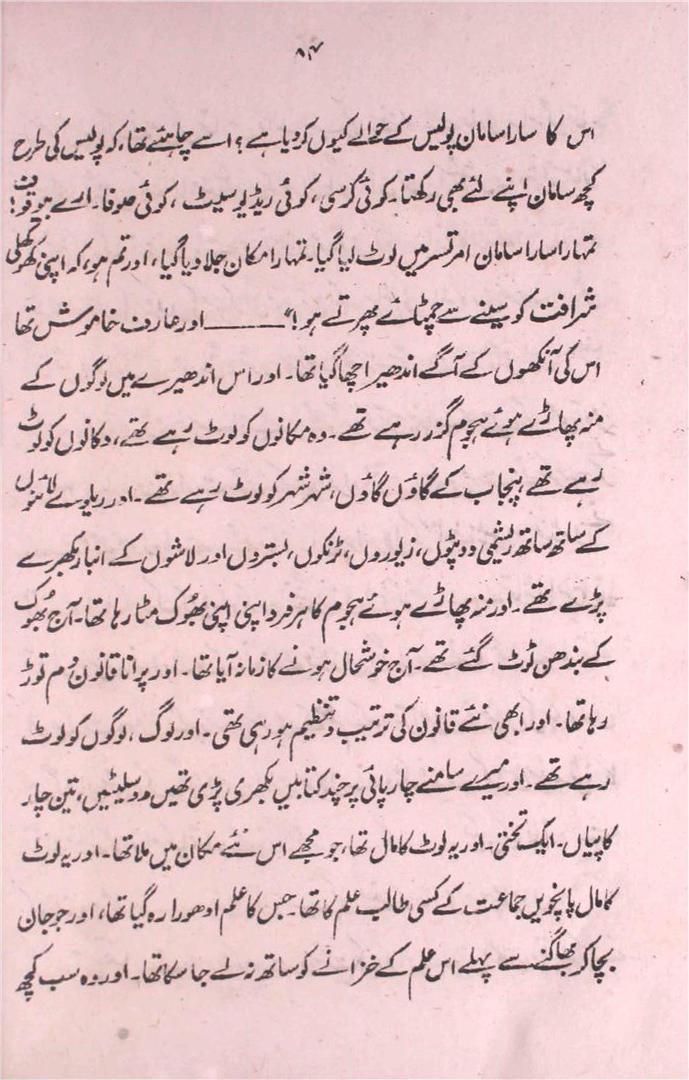 ۸۴
اس کا سارا سامان پولیس کے حوالے کیوں کر دیا ہے؟ اسے چاہئے تھا، کہ پولیس کی طرح
کچھ سامان اپنے لئے بھی رکھتا۔ کوئی کرسی، کوئی ریڈیو سیٹ، کوئی صوفا۔ ارے بیوقوف!
تمہارا سارا سامان امرتسر میں لوٹ لیا گیا۔ تمہارا مکان جلا دیا گیا، اور تم ہو، کہ اپنی کھوکھلی
شرافت کو سینے سے چمٹائے پھرتے ہو!“ ——— اور عارف خاموش تھا
اس کی آنکھوں کے آگے اندھیرا چھا گیا تھا۔ اور اس اندھیرے میں لوگوں کے
منہ پھاڑے ہوئے ہجوم گزر رہے تھے۔ وہ مکانوں کو لوٹ رہے تھے، دکانوں کو لوٹ
رہے تھے، پنجاب کے گاؤں گاؤں، شہر شہر کو لوٹ رہے تھے۔ اور ریلوے لائنوں
کے ساتھ ساتھ ریشمی دوپٹوں، زیوروں، ٹرنکوں، بستروں اور لاشوں کے انبار بکھرے
پڑے تھے۔ اور منہ پھاڑے ہوئے ہجوم کا ہر فرد اپنی اپنی بھوک مٹا رہا تھا۔ آج بھوک
کے بندھن ٹوٹ گئے تھے۔ آج خوشحال ہونے کا زمانہ آیا تھا۔ اور پرانا قانون دم توڑ
رہا تھا۔ اور ابھی نئے قانون کی ترتیب و تنظیم ہو رہی تھی۔ اور لوگ، لوگوں کو لوٹ
رہے تھے۔ اور میرے سامنے چارپائی پر چند کتابیں بکھری پڑی تھیں دو سلیٹیں، تین چار
کاپیاں۔ ایک تختی۔ اور یہ لوٹ کا مال تھا، جو مجھے اس نئے مکان میں ملا تھا۔ اور یہ لوٹ
کا مال پانچویں جماعت کے کسی طالب علم کا تھا۔ جس کا علم ادھورا رہ گیا تھا، اور جو جان
بچا کر بھاگنے سے پہلے اس علم کے خزانے کو ساتھ نہ لے جا سکا تھا۔ اور وہ سب کچھ